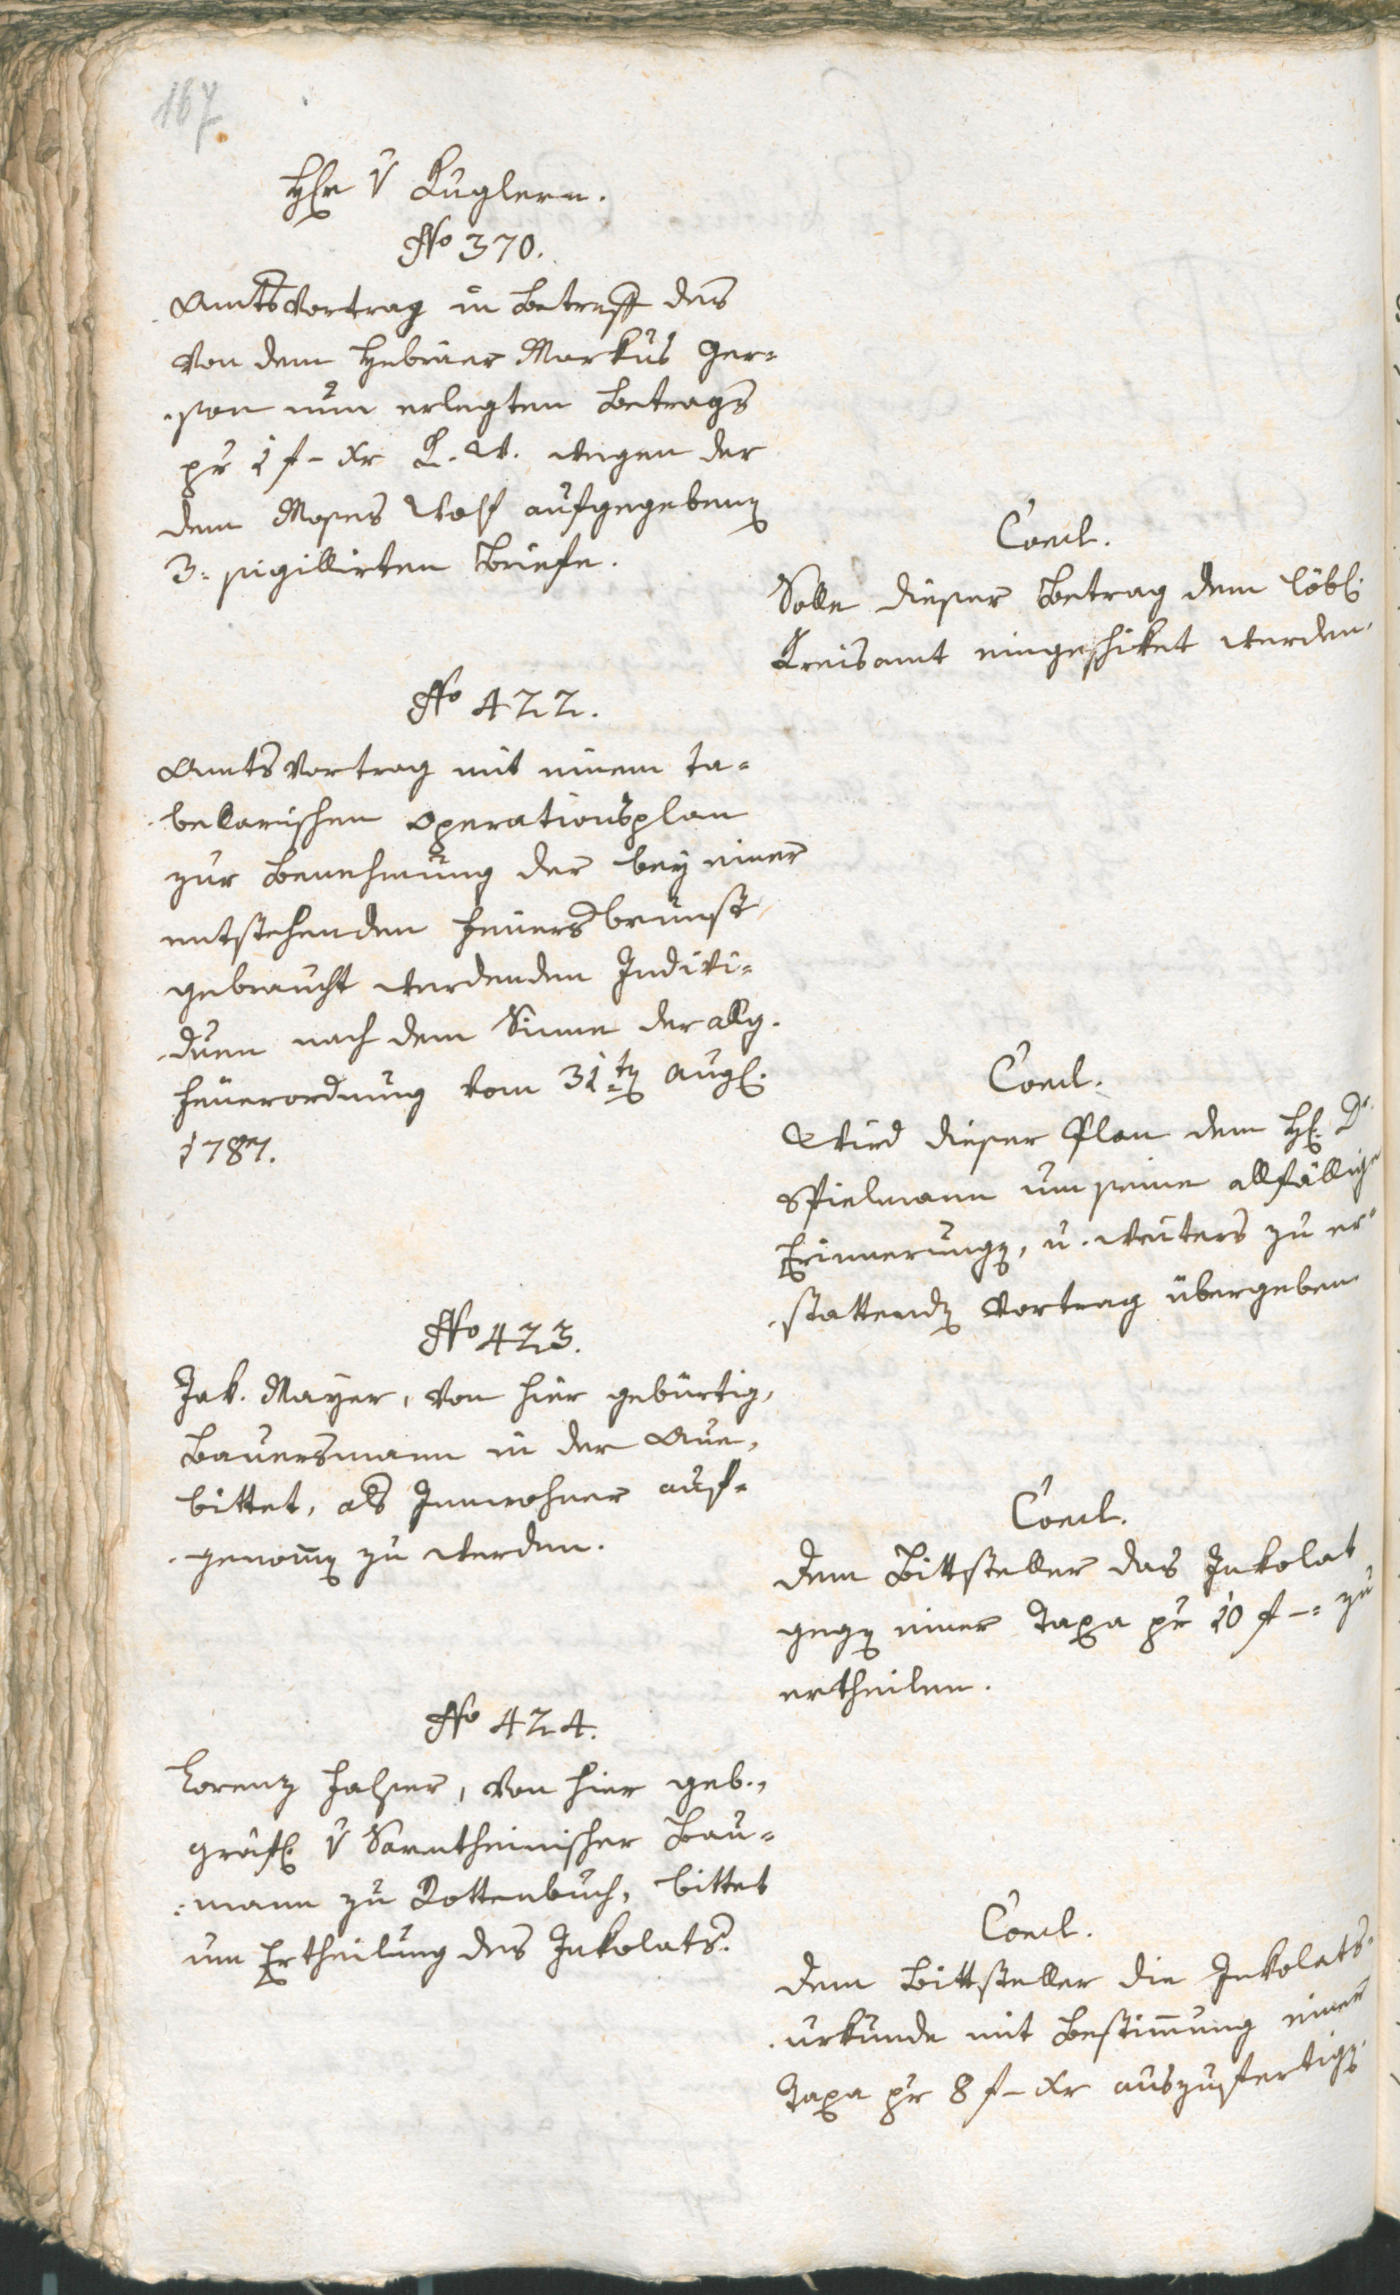 167
Hr v Kuglern.
No 370.
Amtsvortrag in Betreff des
von dem Hebräer Markus Ger-
son nun erlegten Betrags
pr 1 f – xr K. W. wegen der
dem Moses Wolf aufgegebenen
3. sigillirten Briefe.
Concl.
Solle dieser Betrag dem löbl.
Kreisamt eingeschiket werden.
No 422.
Amtsvortrag mit einem ta-
bellarischen Operationsplan
zur Benehmung der bey einer
entstehenden Feuersbrunst
gebraucht werdenden Indivi-
duen nach dem Sinne der allg.
Feuerordnung vom 31ten Augl.
1787.
Concl.
Wird dieser Plan dem H. Dr
Spielmann um seine allfällige
Erinnerungen, u. weiters zu er-
stattenden Vortrag übergeben
No 423.
Jak. Mayer, von hier gebürtig,
Bauersmann in der Aue,
bittet, als Innwohner auf-
genommen zu werden.
Concl.
Dem Bittsteller das Inkolat
gegen einer Taxa pr 10 f –: zu
ertheilen.
No 424.
Lorenz Falser, von hier geb.,
gräfl v Sarntheinischer Bau-
mann zu Rottenbuch, bittet
um Ertheilung des Inkolats.
Concl.
Dem Bittsteller die Inkolats-
urkunde mit Bestimmung einer
Taxa pr 8 f – xr auszufertigen.